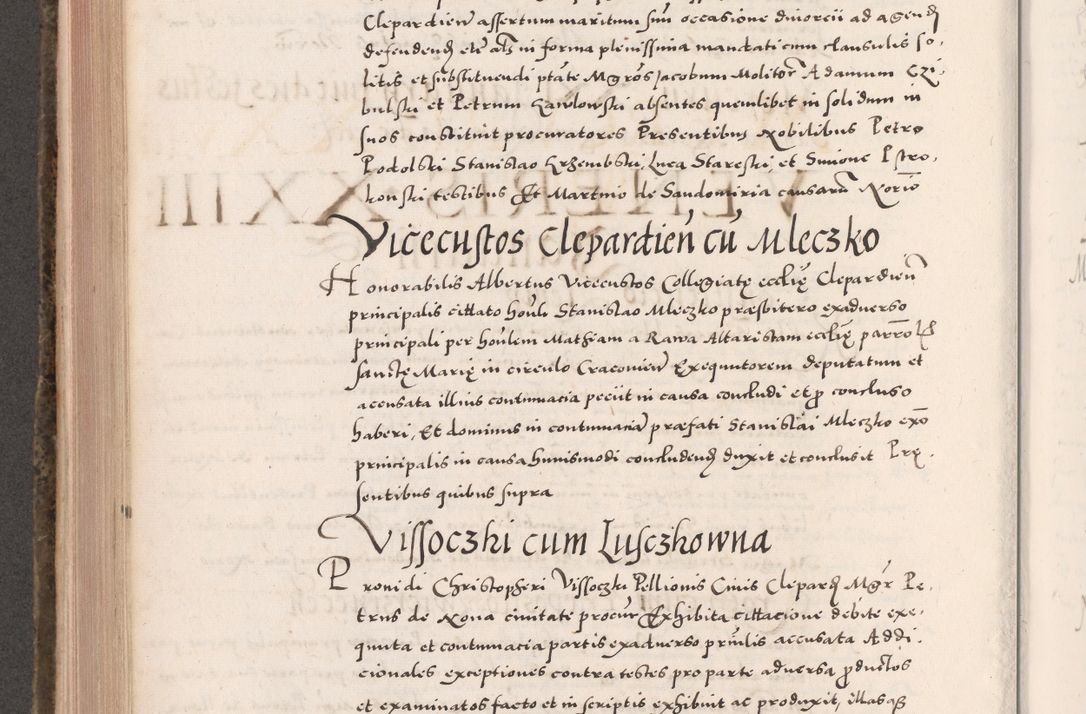 Clepardien̄ assertum maritum suū occasione divorcii ad agend̄
defendend̄ etc̄ als̄ in forma plenissima mandati cum clausulis so-
litis et substituendi ptāte Mgros̄ Jacobum Molitor̄ Adamum Czi-
bulski et Petrum Gawlowski absentes quemlibet in solidum in
suos constituit procuratores Presentibus Nobilibus Petro
Podolski Stanislao Grzembski, Luca Stareski, et Simone Pstro-
konski testibus Et Martino de Sandomiria causarū Norio
Vicecustos Clepardien̄ cū Mleczko
Honorabilis Albertus Vicecustos Collegiatę ecclię Clepardien̄
principalis cittato honli Stanislao Mleczko præsbitero exadverso
principali per honlem Mathiam a Rawa Altaristam ecclię parrolđ
Sanctę Marię in circulo Cracovien̄ Exequutorem deputatum et
accusata illius contumacia peciit in causa concludi et p concluso
haberi, Et dominus in contumaciā præfati Stanislai Mleczko exo
principalis in causa huiusmodi concludend̄ duxit et conclusit Prę-
sentibus quibus supra
Vissoczki cum Lusczkowna
Providi Christopheri Vissoczki Pellionis Civis Clepard̄ Mgr Pe-
trus de Nova civitate procur̄ Exhibita cittacione debite exe-
quuta et contumacia partis exadverso prīnlis accusata Addi-
cionales exceptiones contra testes pro parte adversa productos
et examinatos facto et in scriptis exhibuit ac produxit, illasq